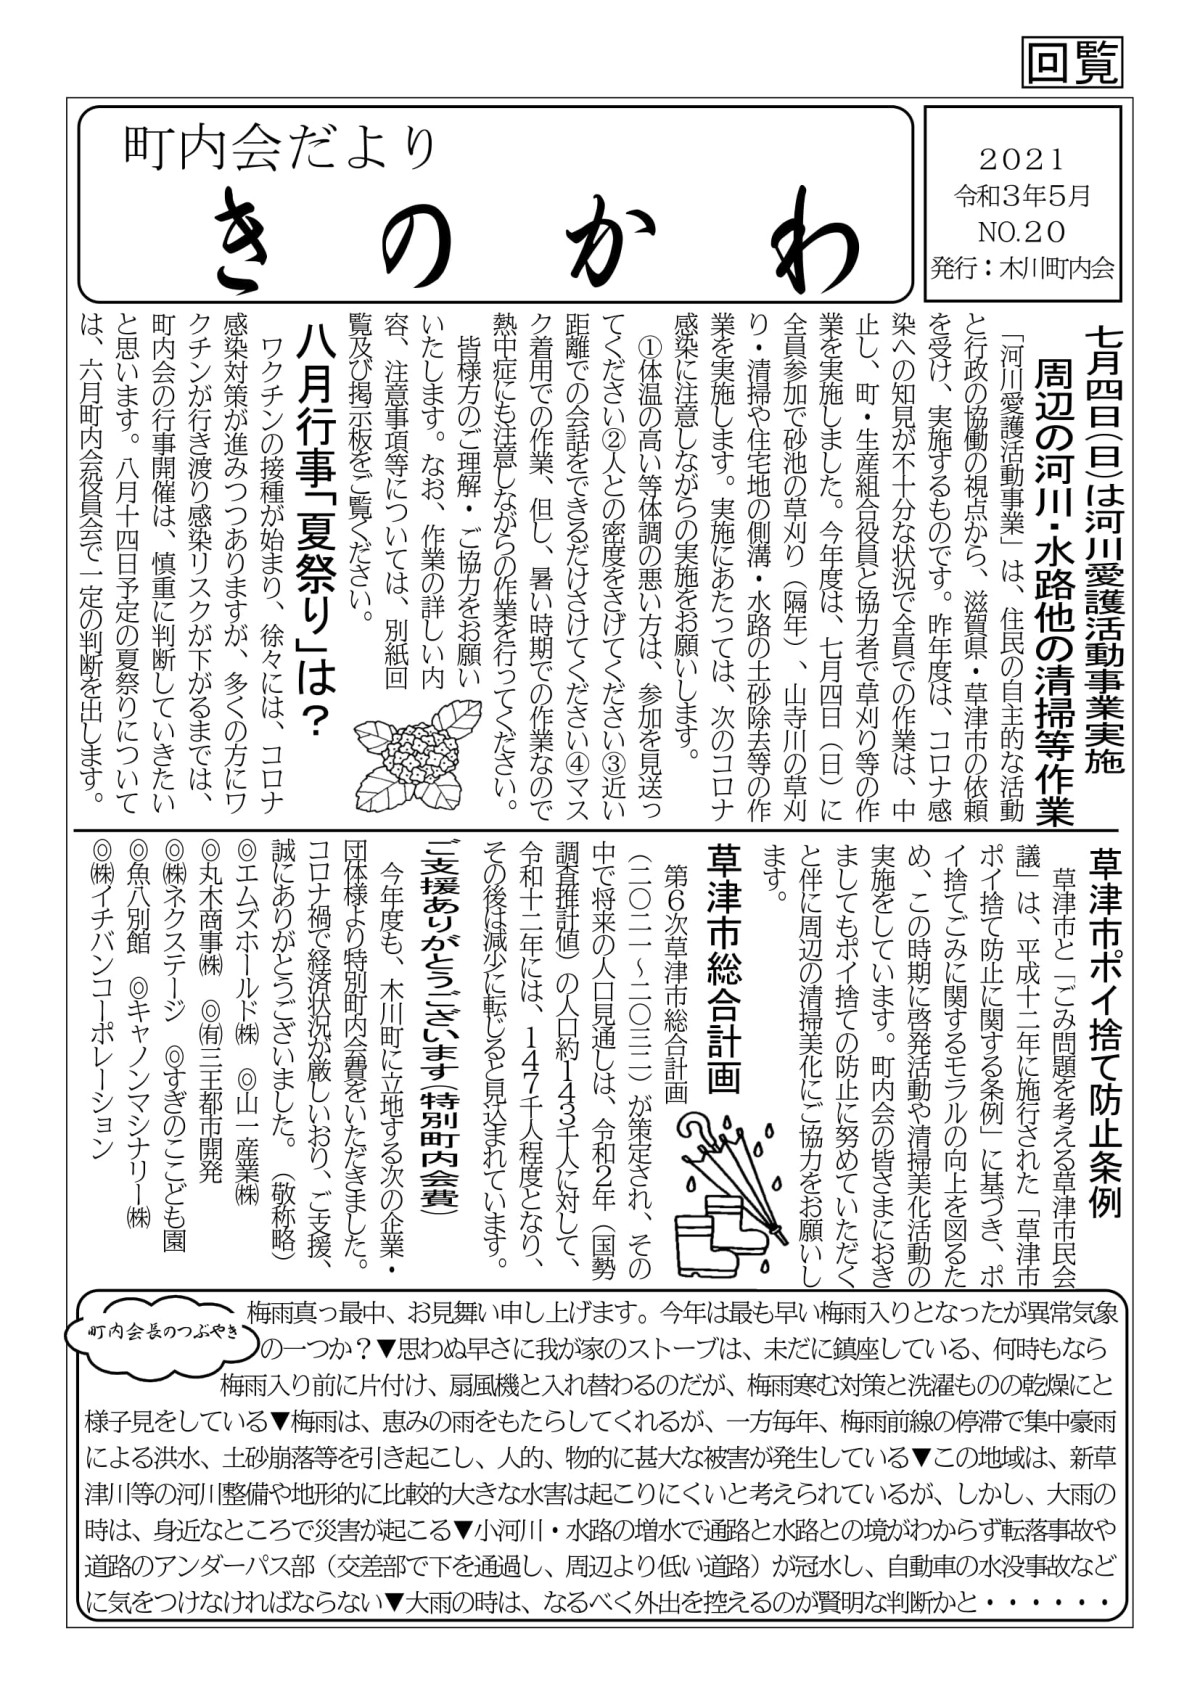 回覧
町内会だより
きのかわ
２０２１
令和３年５月
NO.２０
発行：木川町内会
七月四日（日）は河川愛護活動事業実施
周辺の河川・水路他の清掃等作業
「河川愛護活動事業」は、住民の自主的な活動
と行政の協働の視点から、滋賀県・草津市の依頼
を受け、実施するものです。昨年度は、コロナ感
染への知見が不十分な状況で全員での作業は、中
止し、町・生産組合役員と協力者で草刈り等の作
業を実施しました。今年度は、七月四日（日）に
全員参加で砂池の草刈り（隔年）、山寺川の草刈
り・清掃や住宅地の側溝・水路の土砂除去等の作
業を実施します。実施にあたっては、次のコロナ
感染に注意しながらの実施をお願いします。
①体温の高い等体調の悪い方は、参加を見送っ
てください②人との密度をさげてください③近い
距離での会話をできるだけさけてください④マス
ク着用での作業、但し、暑い時期での作業なので
熱中症にも注意しながらの作業を行ってください。
皆様方のご理解・ご協力をお願い
いたします。なお、作業の詳しい内
容、注意事項等については、別紙回
覧及び掲示板をご覧ください。
八月行事「夏祭り」は？
ワクチンの接種が始まり、徐々には、コロナ
感染対策が進みつつありますが、多くの方にワ
クチンが行き渡り感染リスクが下がるまでは、
町内会の行事開催は、慎重に判断していきたい
と思います。八月十四日予定の夏祭りについて
は、六月町内会役員会で一定の判断を出します。
草津市ポイ捨て防止条例
草津市と「ごみ問題を考える草津市民会
議」は、平成十二年に施行された「草津市
ポイ捨て防止に関する条例」に基づき、ポ
イ捨てごみに関するモラルの向上を図るた
め、この時期に啓発活動や清掃美化活動の
実施をしています。町内会の皆さまにおき
ましてもポイ捨ての防止に努めていただく
と伴に周辺の清掃美化にご協力をお願いし
ます。
草津市総合計画
第６次草津市総合計画
（二〇二一～二〇三二）が策定され、その
中で将来の人口見通しは、令和２年（国勢
調査推計値）の人口約１４３千人に対して、
令和十二年には、１４７千人程度となり、
その後は減少に転じると見込まれています。
ご支援ありがとうございます（特別町内会費）
今年度も、木川町に立地する次の企業・
団体様より特別町内会費をいただきました。
コロナ禍で経済状況が厳しいおり、ご支援、
誠にありがとうございました。（敬称略）
◎エムズホールド㈱　◎山一産業㈱
◎丸木商事㈱　◎㈲三王都市開発
◎㈱ネクステージ　◎すぎのここども園
◎魚八別館　◎キャノンマシナリー㈱
◎㈱イチバンコーポレーション
町内会長のつぶやき
梅雨真っ最中、お見舞い申し上げます。今年は最も早い梅雨入りとなったが異常気象
の一つか？▼思わぬ早さに我が家のストーブは、未だに鎮座している、何時もなら
梅雨入り前に片付け、扇風機と入れ替わるのだが、梅雨寒む対策と洗濯ものの乾燥にと
様子見をしている▼梅雨は、恵みの雨をもたらしてくれるが、一方毎年、梅雨前線の停滞で集中豪雨
による洪水、土砂崩落等を引き起こし、人的、物的に甚大な被害が発生している▼この地域は、新草
津川等の河川整備や地形的に比較的大きな水害は起こりにくいと考えられているが、しかし、大雨の
時は、身近なところで災害が起こる▼小河川・水路の増水で通路と水路との境がわからず転落事故や
道路のアンダーパス部（交差部で下を通過し、周辺より低い道路）が冠水し、自動車の水没事故など
に気をつけなければならない▼大雨の時は、なるべく外出を控えるのが賢明な判断かと・・・・・・